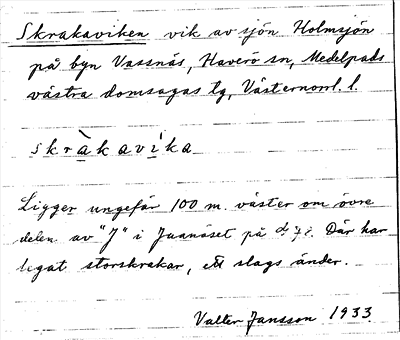 Skrakaviken vik av sjön Holmsjön
på byn Vassnäs, Haverö sn, Medelpads
västra domsagas tg, Västernorrl. l.
skràkavìka
Ligger ungefär 100 m. väster om övre
delen av "J" i Juanäset på
Där har
legat storskrakar, ett slags änder.
Valter Jansson 1933